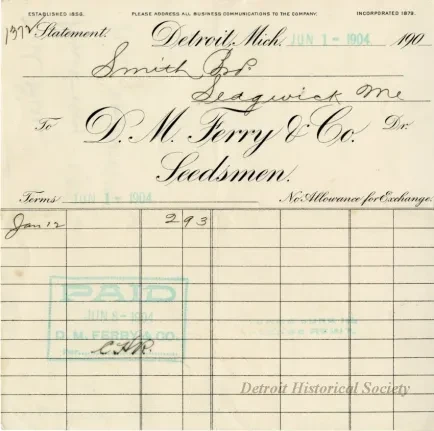 ESTABLISHED 1856. PLEASE ADDRESS ALL BUSINESS COMMUNICATIONS TO THE COMPANY. INCORPORATED 1879.
Statement. Detroit, Mich. JUN 1 - 1904 190
Smith Bro.
Sedgwick Me
To D. M. Ferry & Co. Dr.
Seedsmen.
Terms JUN 1 - 1904 No Allowance for Exchange.
Jan 12 2 93
PAID
JUN 8 - 1904
D. M. FERRY & CO.
C.H.R.
Detroit Historical Society